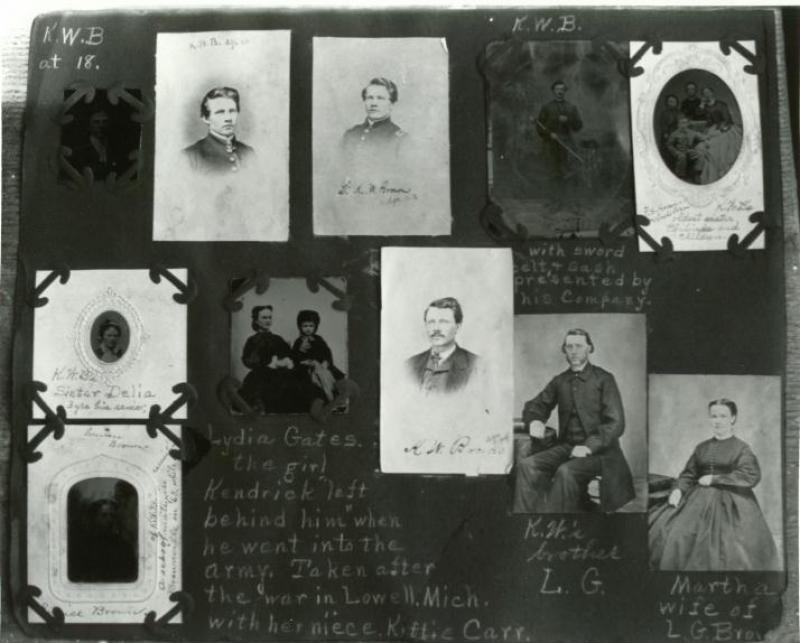 K.W.B
at 18.
K.W.B.
K.W.B.
Lt. K.W. Brown
K.W.B's
oldest sister
and
children
with sword
belt, + sash
presented by
his Company.
K.W.B.
Sister Delia
3 yrs his senior
K.W. Brown
Lydia Gates.
"the girl
Kendrick left
behind him" when
he went into the
army. Taken after
the war in Lowell, Mich.
with her niece, Kittie Carr.
Brown
Brown
K.W.'s
brother
L.G.
Martha
wife of
L G Brown